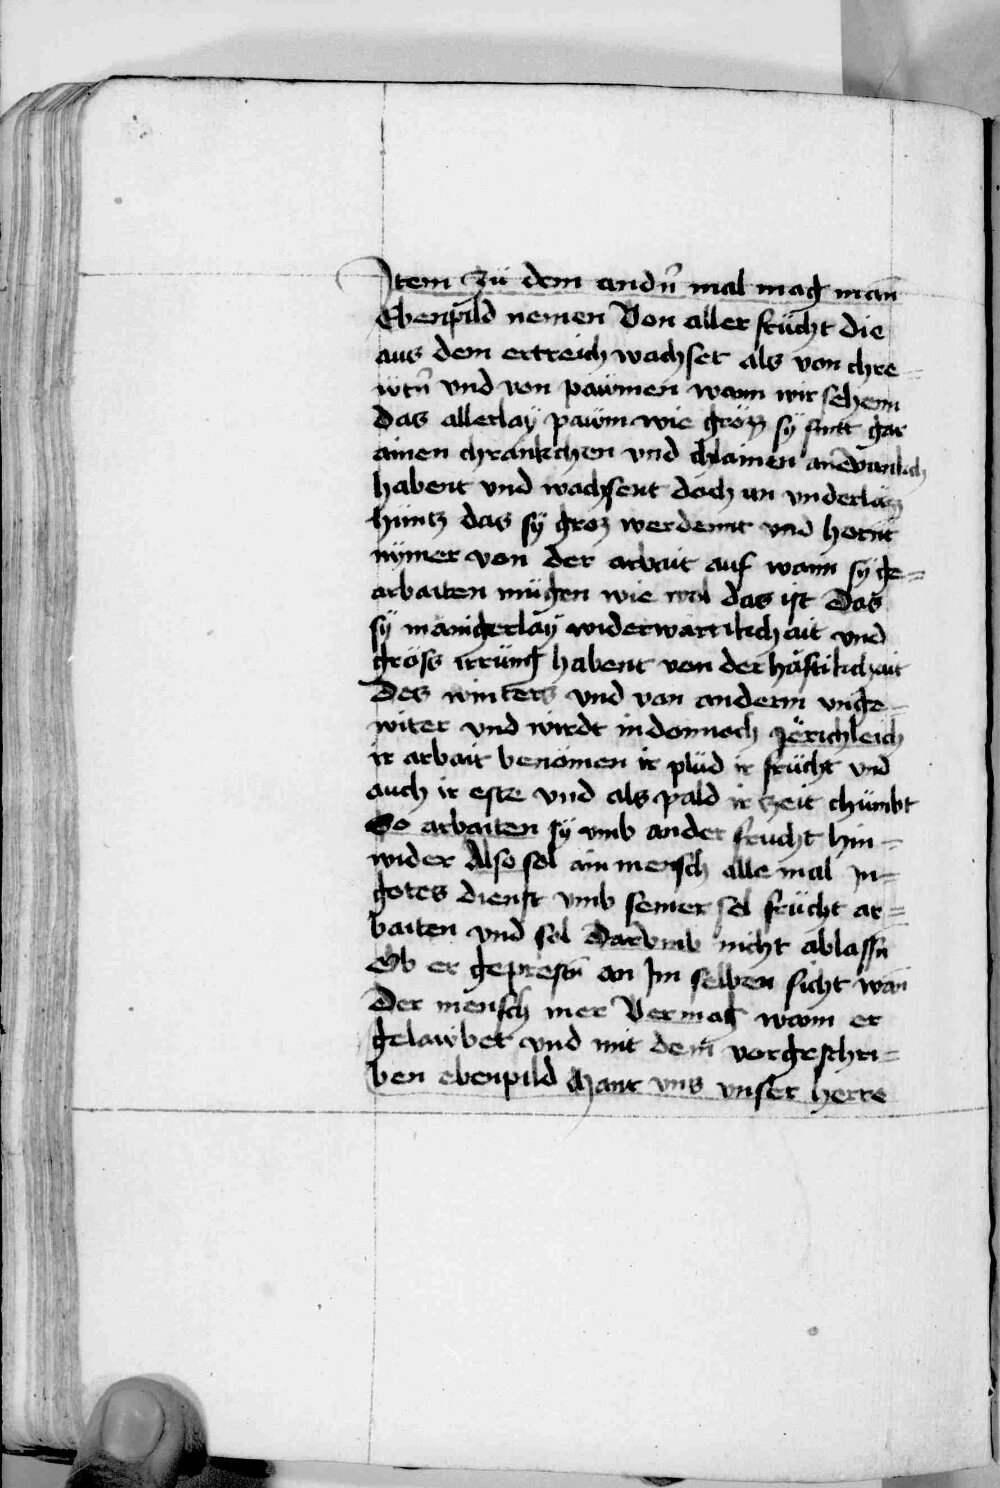 Item zü dem andn̄ mal mag man
Ebenpild nemen Von aller frücht die
aus dem ertreich wachset als von chre=
wtn̄ vnd von pawmen wann wir sehenn
das allerlaÿ pawm wie gröz sÿ sintt gar
ainen chrankchen vnd chlainen anevankch
habent vnd wachsent doch an vnderlaz
hüntz das sÿ groz werdennt vnd hornt
nÿmer von der arbait auf wann sÿ ge=
arbaiten mügen wie wol das ist Das
sÿ manigerlaÿ widerwärtikchait vnd
gröss irrüng habent von der häftikchait
Des winters vnd von anderm vnge=
witer vnd wirdt in dannoch Järichleich
ir arbait benömen ir plüd ir frücht vnd
auch ir este vnd als pald ir zeit chümbt
So arbaiten sÿ vmb ander frucht hin=
wider Also sol ain mensch alle mal In=
gotes dienst vmb seiner sel frücht ar=
baiten vnd sol Darvmb nicht ablassn̄
Ob er geprestn̄ an Im selben sicht wan̄
Der mensch mer Vermag wann er
gelawbet vnd mit dem vorgeschri=
ben ebenpild Mant vns vnser Herre